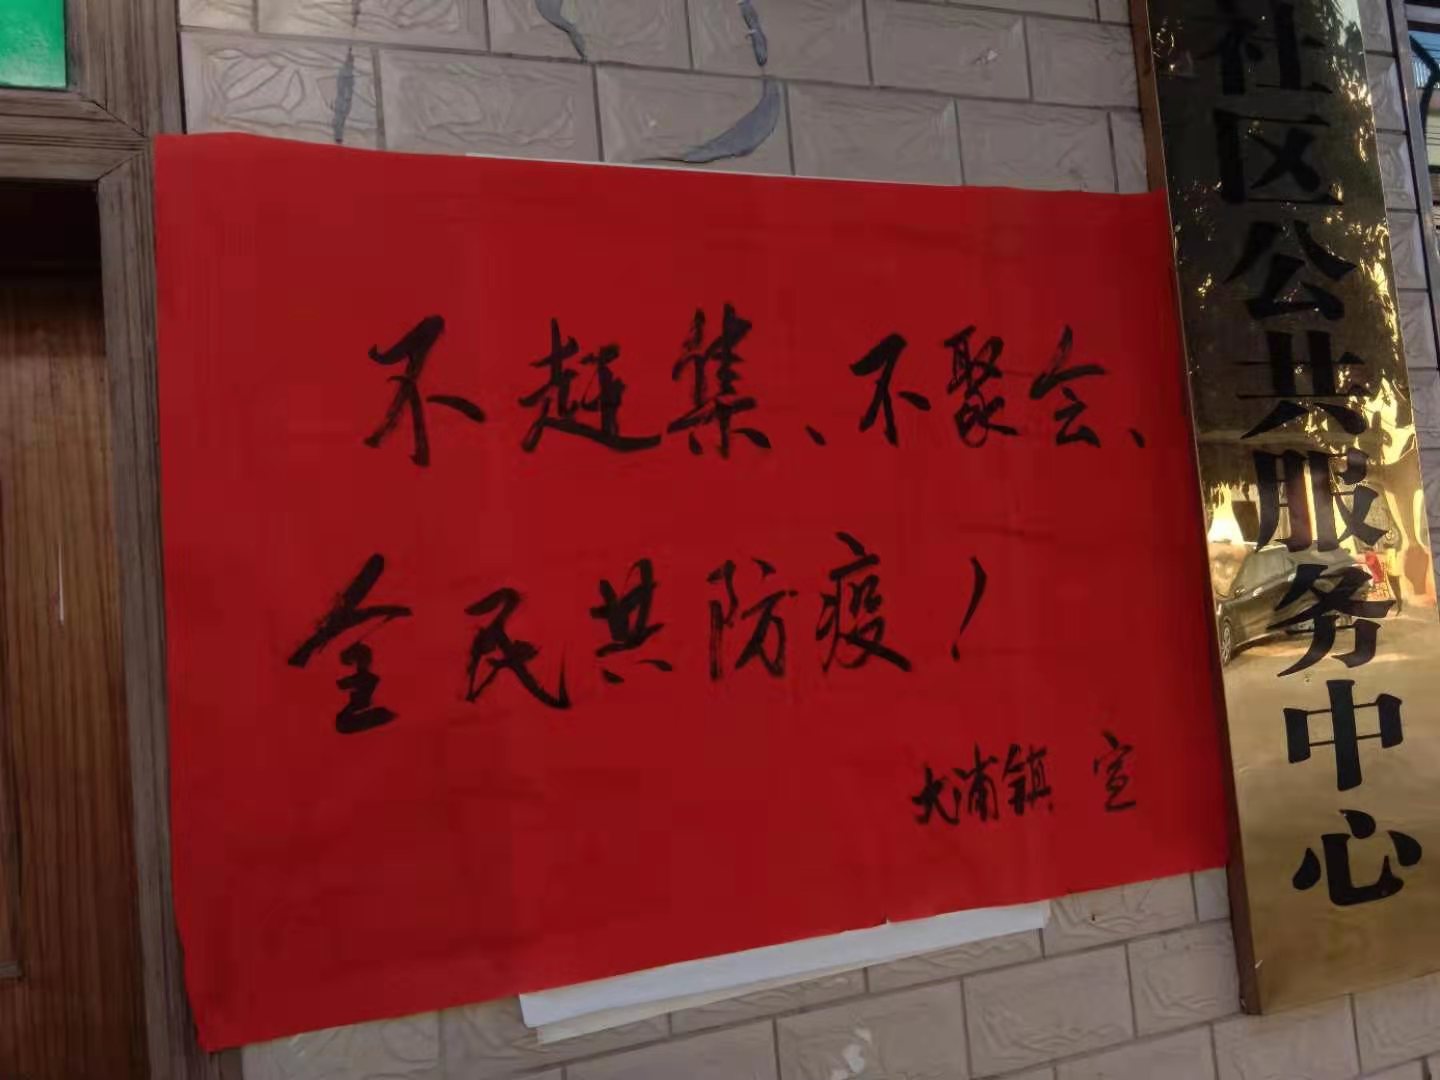 不赶集、不聚会、
全民共防疫！
大浦镇 宣
社区公共服务中心